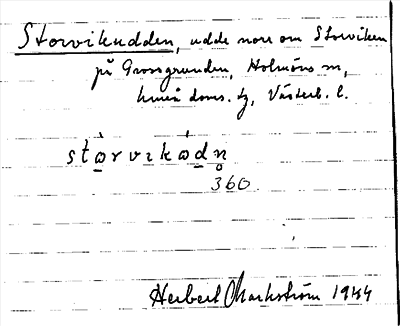 Storvikudden, udde norr om Storviken
på Grossgrunden, Holmöns sn,
Umeå doms. tg, Västerb. l.
stòrvikádn̥
360
Herbert Markström 1944